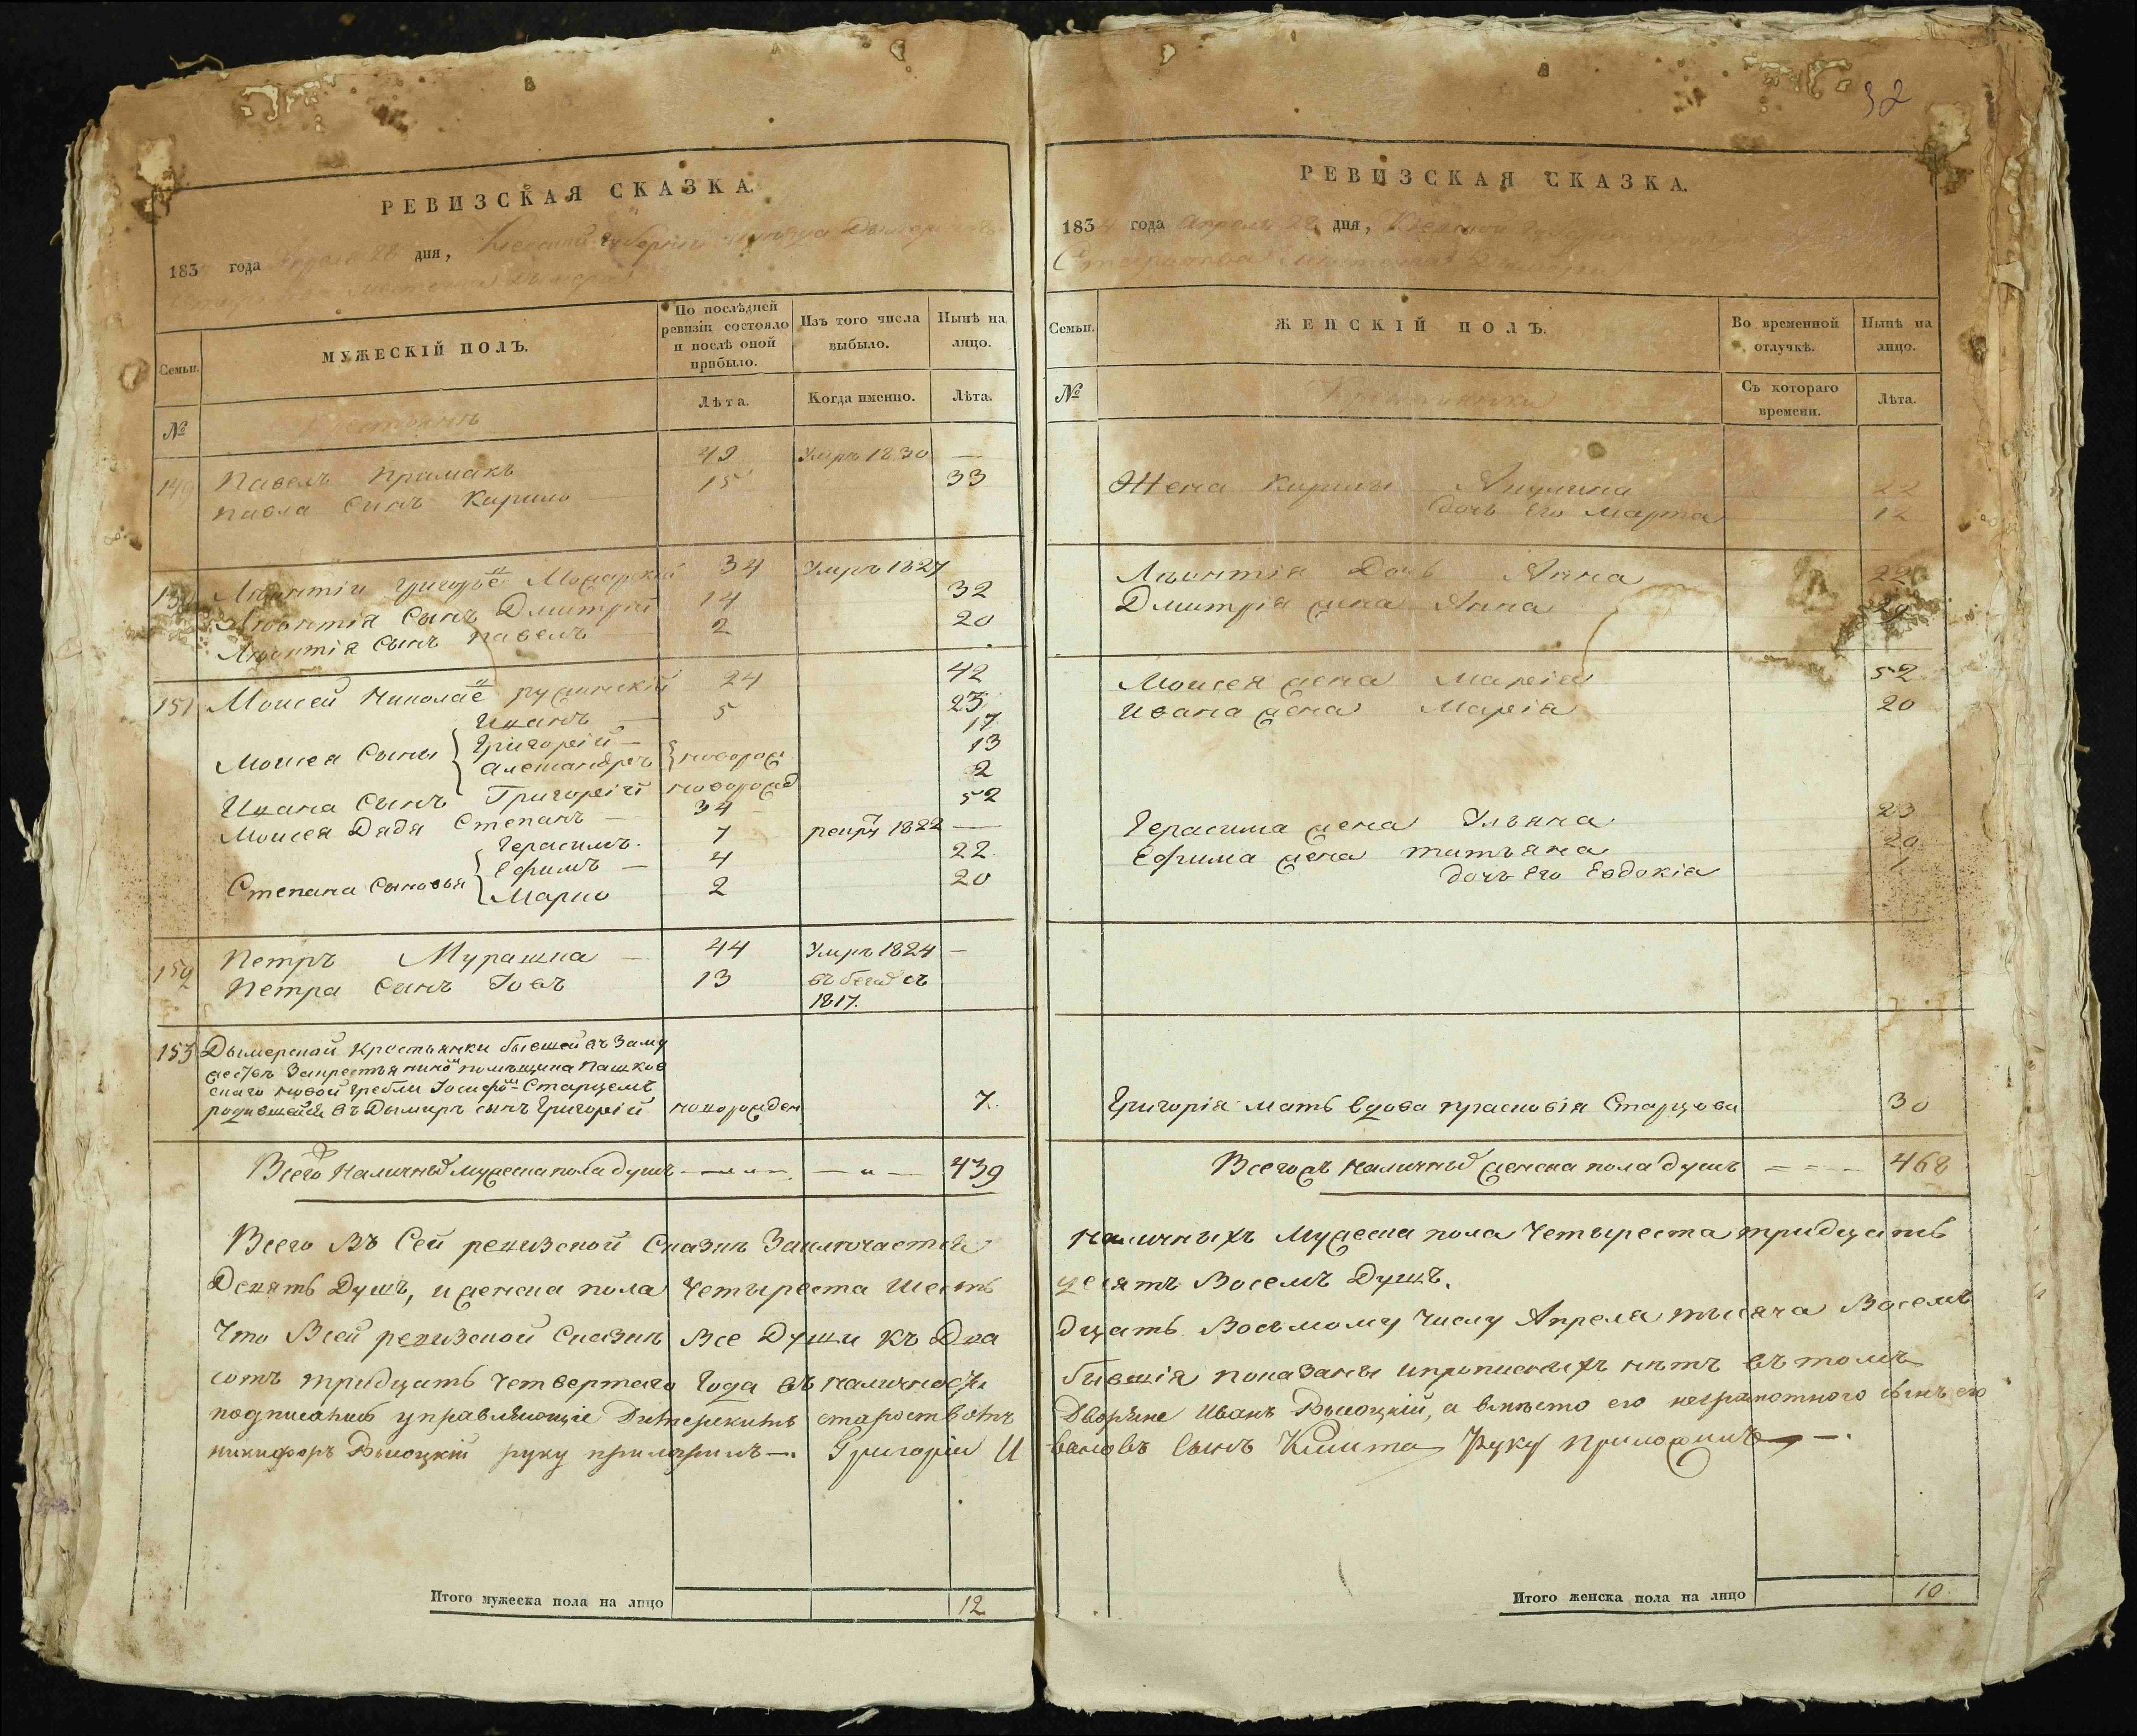 32
РЕВИЗСКАЯ СКАЗКА.
183 года Апреля 28 дня, Киевской губерніи уезда Дымерскаго
Староства местечка Дымера
Семьи.
МУЖЕСКІЙ ПОЛЪ.
По послѣдней ревизіи состояло и послѣ оной прибыло.
Изъ того числа выбыло.
Нынѣ на лицо.
№
Лѣта.
Когда именно.
Лѣта.
149 Павелъ Примакъ 49 Умръ 1830 —
Павла Сынъ Кирило 15 33
150 Леонтій Григорьев Можарскій 34 Умръ 1827
Леонтія Сынъ Дмитрій 14 32
Леонтія Сынъ Павелъ 2 20
151 Моисей Николаев 24 42
Иванъ — 5 23
Моисея Сыны Григорій — 17
Александръ новорож 13
Ивана Сынъ Григорій новорожд 2
Моисея Дядя Степанъ — 34 52
Герасимъ 7 рекру 1822 —
Степана Сыновья Ефимъ — 4 22
Марко 2 20
152 Петръ Мурашка — 44 Умръ 1824 —
Петра Сынъ Іовъ 13 въ бегах съ
1817.
153 Дымерской Крестьянки бывшей въ Заму
жестве За крестьянино помѣщика Пашков
скаго новой Гребли Іосифо Старцемъ
родившейся въ Дымиръ сынъ Григорій новорожден 7.
Всего Наличныхъ мужеска пола душъ 439
Всего въ Сей ревизской Сказкѣ Заключается
Девять Душъ, и женска пола Четыреста Шесть
Что Всей ревизской Сказкѣ Все Души къ Два
сотъ тридцать Четвертаго Года въ наличности
подписаніе управляющіе Дымерскимъ староствомъ
никифоръ Высоцкій руку приложилъ —. Григорій И
Итого мужеска пола на лицо 12
РЕВИЗСКАЯ СКАЗКА.
1834 года Апреля 28 дня, Киевской
Староства местечка Дымера
Семьи.
ЖЕНСКІЙ ПОЛЪ.
Во временной отлучкѣ.
Нынѣ на лицо.
№
Съ котораго времени.
Лѣта.
Жена Кирилы Акулина 22
Дочь Его Марта 12
Леонтія Дочь Анна 22
Дмитрія жена Анна
Моисея жена Марія 52
Ивана жена Марія 20
Герасима жена Ульяна 23
Ефима жена татьяна 20
дочь Его Евдокія 1
Григорія мать вдова прасковія Старцова 30
Всего наличныхъ женска пола душъ 468
Наличныхъ Мужеска пола Четыреста тридцать
десятъ Восемъ Душъ.
дцать Восьмому Числу Апреля тысяча Восемъ
бывшія показаны и прописныхъ нѣтъ въ томъ
Дворяне Иванъ Высоцкій, а вместо его неграмотного сынъ его
вановъ Сынъ Кмита Руку приложилъ —.
Итого женска пола на лицо 10